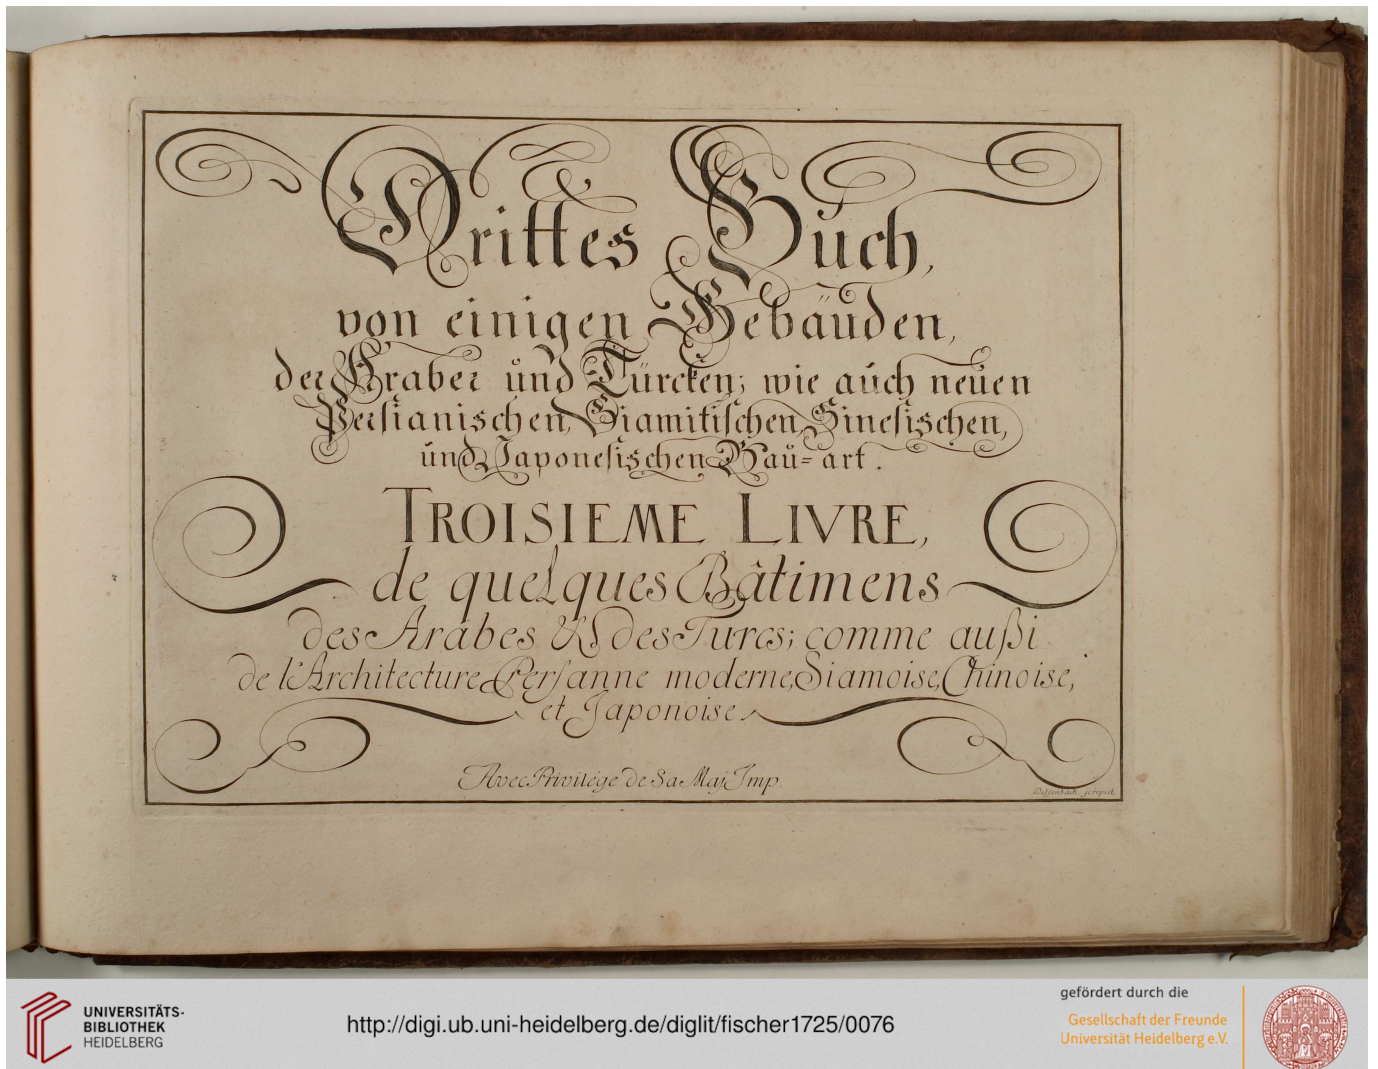 Drittes Buch,
von einigen Gebäuden,
der Araber und Türcken; wie auch neuen
Persianischen, Siamitischen, Sinesischen,
und Japonesischen Bau=art.
TROISIEME LIVRE,
de quelques Bâtimens
des Arabes & des Turcs; comme außi
de l'Architecture Persanne moderne, Siamoise, Chinoise,
et Japonoise.
Avec Privilége de Sa Maj. Imp.
Delsenbach scripsit.
UNIVERSITÄTS-
BIBLIOTHEK
HEIDELBERG
http://digi.ub.uni-heidelberg.de/diglit/fischer1725/0076
gefördert durch die
Gesellschaft der Freunde
Universität Heidelberg e.V.